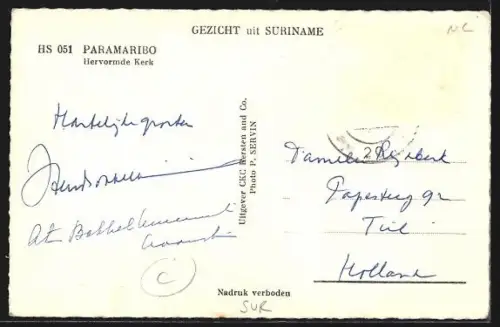 GEZICHT uit SURINAME
N.C
HS 051 PARAMARIBO
Hervormde Kerk
Hartelijke groeten
Uitgever CKC Kersten and Co.
Photo P. SERVIN
Familie
Papesteeg 92
Tiel
Holland
C
Nadruk verboden
SUR